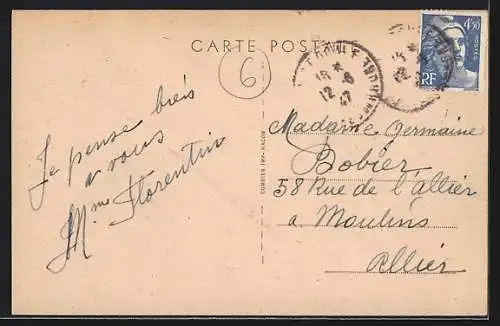 CARTE POSTALE
6
4f50
RF
15 *
12 - 8
47
Je pense bien
a vous
Mme Florentin
COMBIER IMP. MACON
Madame Germaine
Bobier
58 Rue de l'allier
a Moulins
Allier